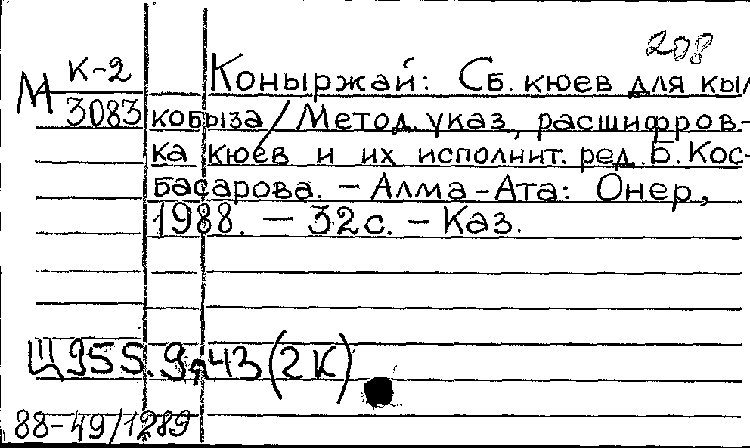 208
К-2
М 3083
Коныржай: Сб. кюев для кыл
кобыза / Метод. указ, расшифров-
ка кюев и их исполнит. ред. Б. Кос-
басарова. – Алма-Ата: Онер,
1988. – 32 с. – Каз.
Щ955.9я43(2К)
88-49/1289